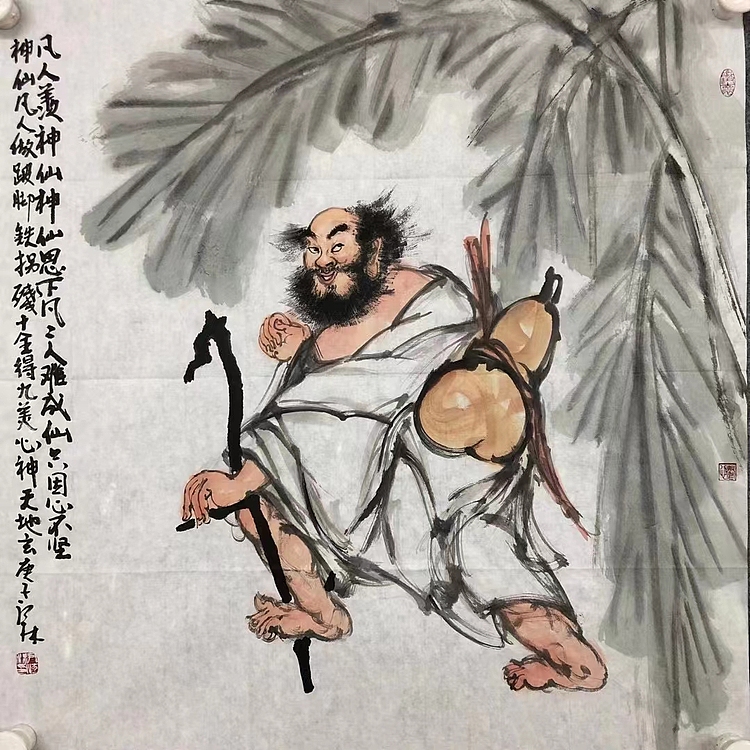 凡人羡神仙神仙思下凡凡人难成仙只因心不坚
神仙凡人做跟脚铁拐残十全得九美心神天地玄庚子江林